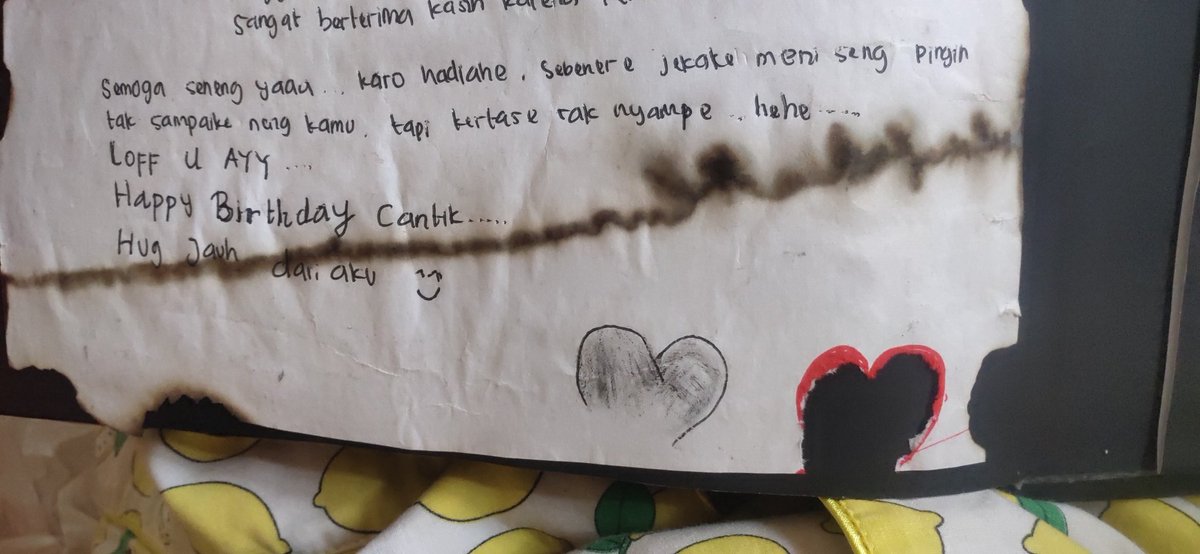 sangat berterima kasih karena
Semoga seneng yaau... karo hadiahe. Sebenere jekakeh meni seng pingin
tak sampaike nang kamu. tapi kertase rak nyampe .. hehe .....
LOFF U AYY ....
Happy Birthday Cantik.....
Hug Jauh dari aku